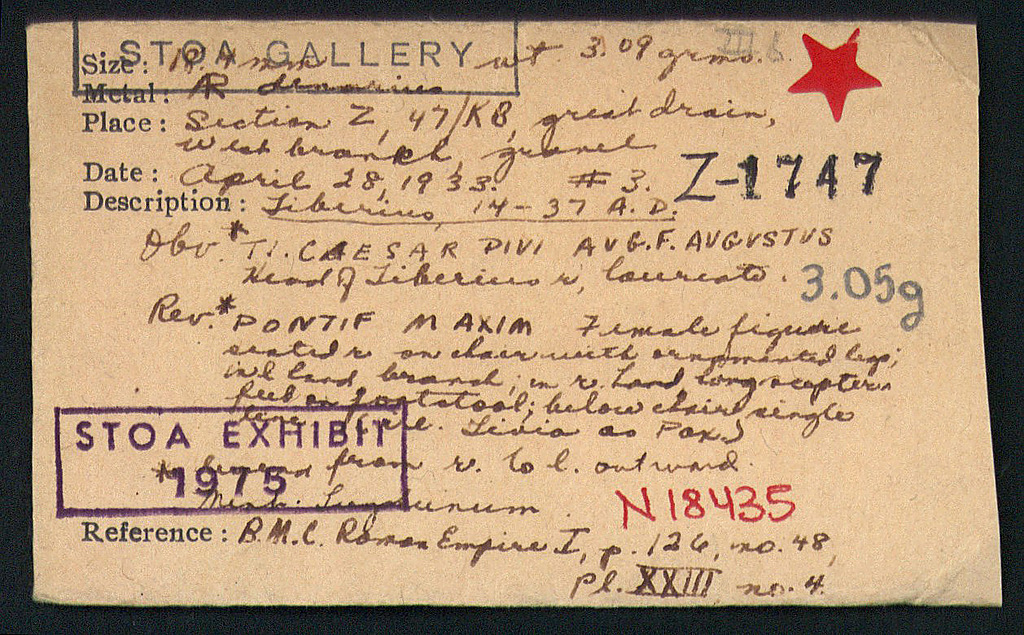 STOA GALLERY
III 6
Size: mm wt 3.09 grms.
Metal: AR denarius
Place: Section Z, 47/KB, great drain,
West branch, gravel
Date: April 28, 1933. #3.
Z-1747
Description: Tiberius, 14-37 A.D.
Obv.* TI. CAESAR DIVI AVG.F. AVGVSTVS
Head of Tiberius r, laureate.
3.05g
Rev.* PONTIF MAXIM Female figure
seated r on chair with ornamented legs;
in l hand branch; in r. hand, long scepter
feet on footstool; below chair single
line. Livia as Pax.)
STOA EXHIBIT
1975
* legend from r. to l. outward
Mint: Lugdunum
N18435
Reference: B.M.C. Roman Empire I, p. 126, no. 48,
Pl. XXIII no. 4.